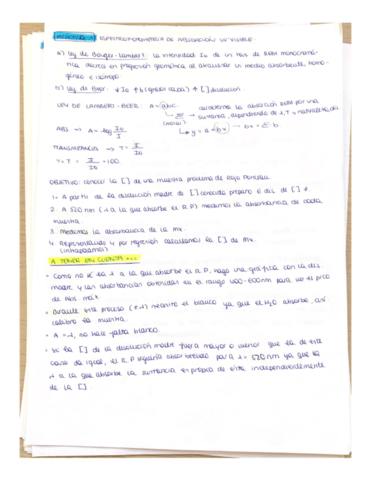 PRÁCTICA 1: ESPECTROFOTOMETRÍA DE ABSORCIÓN UV-VISIBLE
a) Ley de Bouger-Lambert: la intensidad Io de un haz de REM monocromá-
tica decrece en proporción geométrica al atravesar un medio absorbente, homo-
géneo e isótropo
b) Ley de Beer: ↓ Io ↑ b (espesor ) ↑ [] disolución
LEY DE LAMBERT-BEER: A = abc
la absorción REM por una
sustancia, dependiendo de λ, T y naturaleza
ABS → A = -log I / Io
y = a + bx → bx = ε·b
TRANSMITANCIA → T = I / Io
% T = I / Io · 100
OBJETIVO: conocer la [] de una muestra problema de Rojo Ponceau
1. A partir de la disolución madre de [] conocida preparo 5 dis. de [] ≠
2. A 520 nm (λ a la que absorbe el R.P) medimos la absorbancia de cada
muestra.
3. Medimos la absorbancia de la Mx.
4. Representando y por regresión calculamos la [] de Mx.
(interpolamos)
A TENER EN CUENTA...
- Como no sé la λ a la que absorbe el R.P, hago una gráfica con la dis.
madre y las absorbancias obtenidas en el rango 400-600nm para ver el pico
de Abs max.
- Durante este proceso (≠λ) necesito el blanco ya que el H2O absorbe, así
calibro la muestra.
- A = λ, no hace falta blanco.
- Si la [] de la disolución madre fuera mayor o menor que la de este
caso da igual, el R.P seguiría absorbiendo para λ = 520 nm ya que la
λ a la que absorbe la sustancia es propia de ésta independientemente
de la []